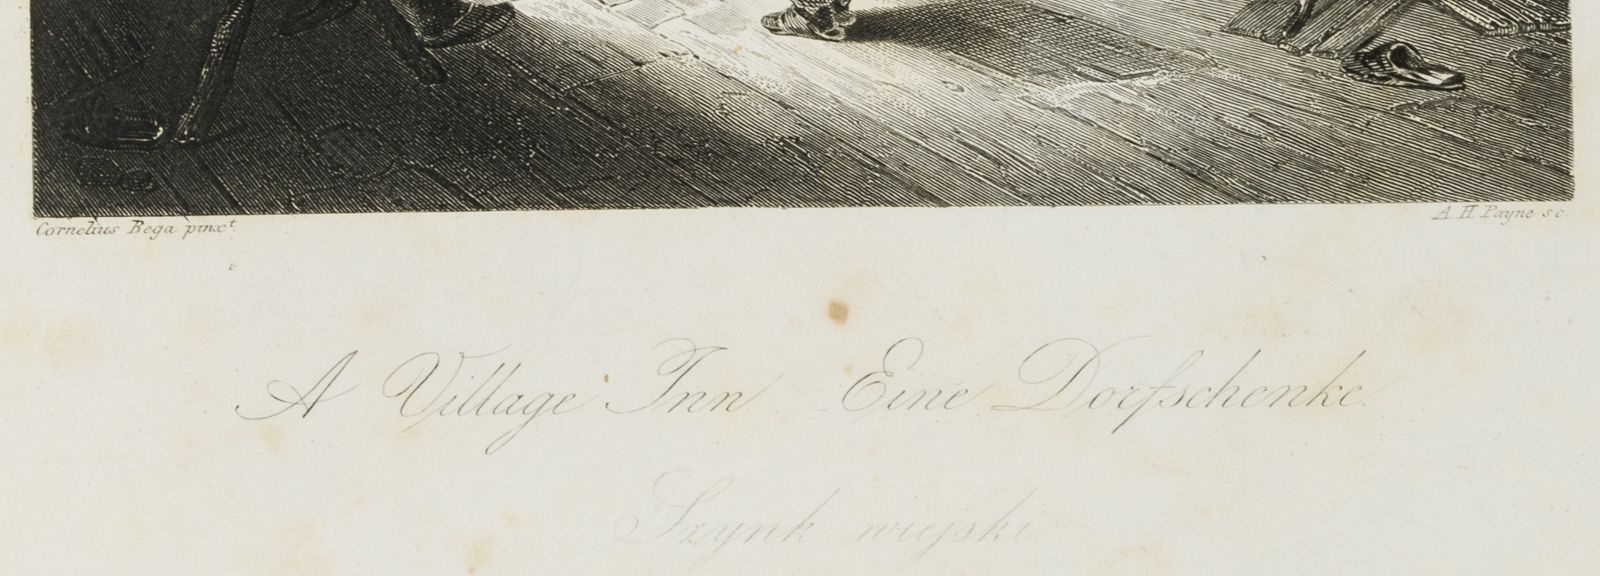 Cornelius Bega pinxt.
A H Payne sc.
A Village Inn Eine Dorfschenke.
Szynk wiejski